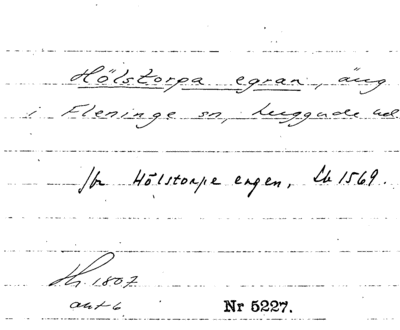 Hölstorpa egran, äng
i Fleninge sn, huggude ved
jfr Hölstorpe engen, Lb 1569.
Th. 1807
akt 6
Nr 5227.